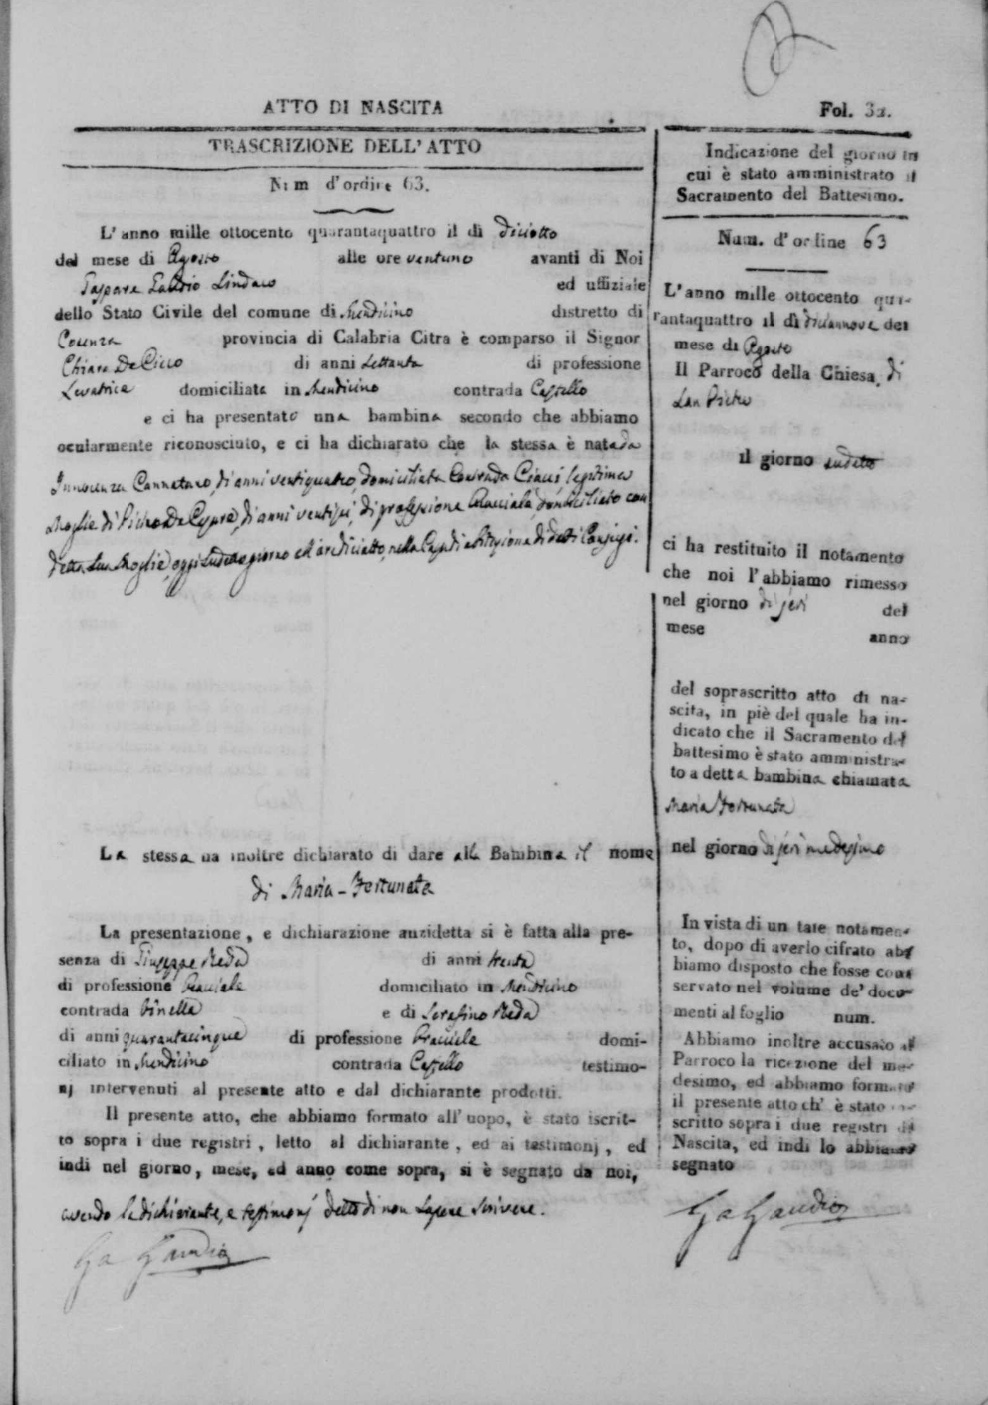 ATTO DI NASCITA
Fol. 32.
TRASCRIZIONE DELL'ATTO
Num d'ordine 63.
L'anno mille ottocento quarantaquattro il dì diciotto
del mese di Agosto alle ore ventuno avanti di Noi
Gaspare Gaudio Sindaco ed uffiziale
dello Stato Civile del comune di Mendicino distretto di
Cosenza provincia di Calabria Citra è comparso il Signor
Chiara De Cicco di anni settanta di professione
Levatrice domiciliata in Mendicino contrada Castello
e ci ha presentato una bambina secondo che abbiamo
ocularmente riconosciuto, e ci ha dichiarato che la stessa è nata da
Innocenza Cannataro, di anni ventiquattro, domiciliata Contrada legittima
Moglie di Pietro De di anni di professione domiciliato con
detta sua Moglie, oggi sudetto giorno ed ore diciotto, nella Casa di abitazione di detti Conjugi.
La stessa ha inoltre dichiarato di dare alla Bambina il nome
di Maria-Fortunata
La presentazione, e dichiarazione anzidetta si è fatta alla pre-
senza di Giuseppe Reda di anni trenta
di professione Bracciale domiciliato in Mendicino
contrada e di Serafino Reda
di anni quarantacinque di professione Bracciale domi-
ciliato in Mendicino contrada Castello testimo-
nj intervenuti al presente atto e dal dichiarante prodotti.
Il presente atto, che abbiamo formato all'uopo, è stato iscrit-
to sopra i due registri, letto al dichiarante, ed ai testimonj, ed
indi nel giorno, mese, ed anno come sopra, si è segnato da noi,
avendo la dichiarante, e testimonj detto di non sapere scrivere.
Ga Gaudio
Indicazione del giorno in
cui è stato amministrato il
Sacramento del Battesimo.
Num. d'ordine 63
L'anno mille ottocento qua-
rantaquattro il dì diciannove del
mese di Agosto
Il Parroco della Chiesa di
San Pietro
il giorno sudetto
ci ha restituito il notamento
che noi l'abbiamo rimesso
nel giorno di jeri del
mese anno
del soprascritto atto di na-
scita, in piè del quale ha in-
dicato che il Sacramento del
battesimo è stato amministra-
to a detta bambina chiamata
Maria Fortunata
nel giorno di jeri medesimo
In vista di un tale notamen-
to, dopo di averlo cifrato ab-
biamo disposto che fosse con-
servato nel volume de' docu-
menti al foglio num.
Abbiamo inoltre accusato al
Parroco la ricezione del me-
desimo, ed abbiamo formato
il presente atto ch' è stato in-
scritto sopra i due registri di
Nascita, ed indi lo abbiamo
segnato
Ga Gaudio